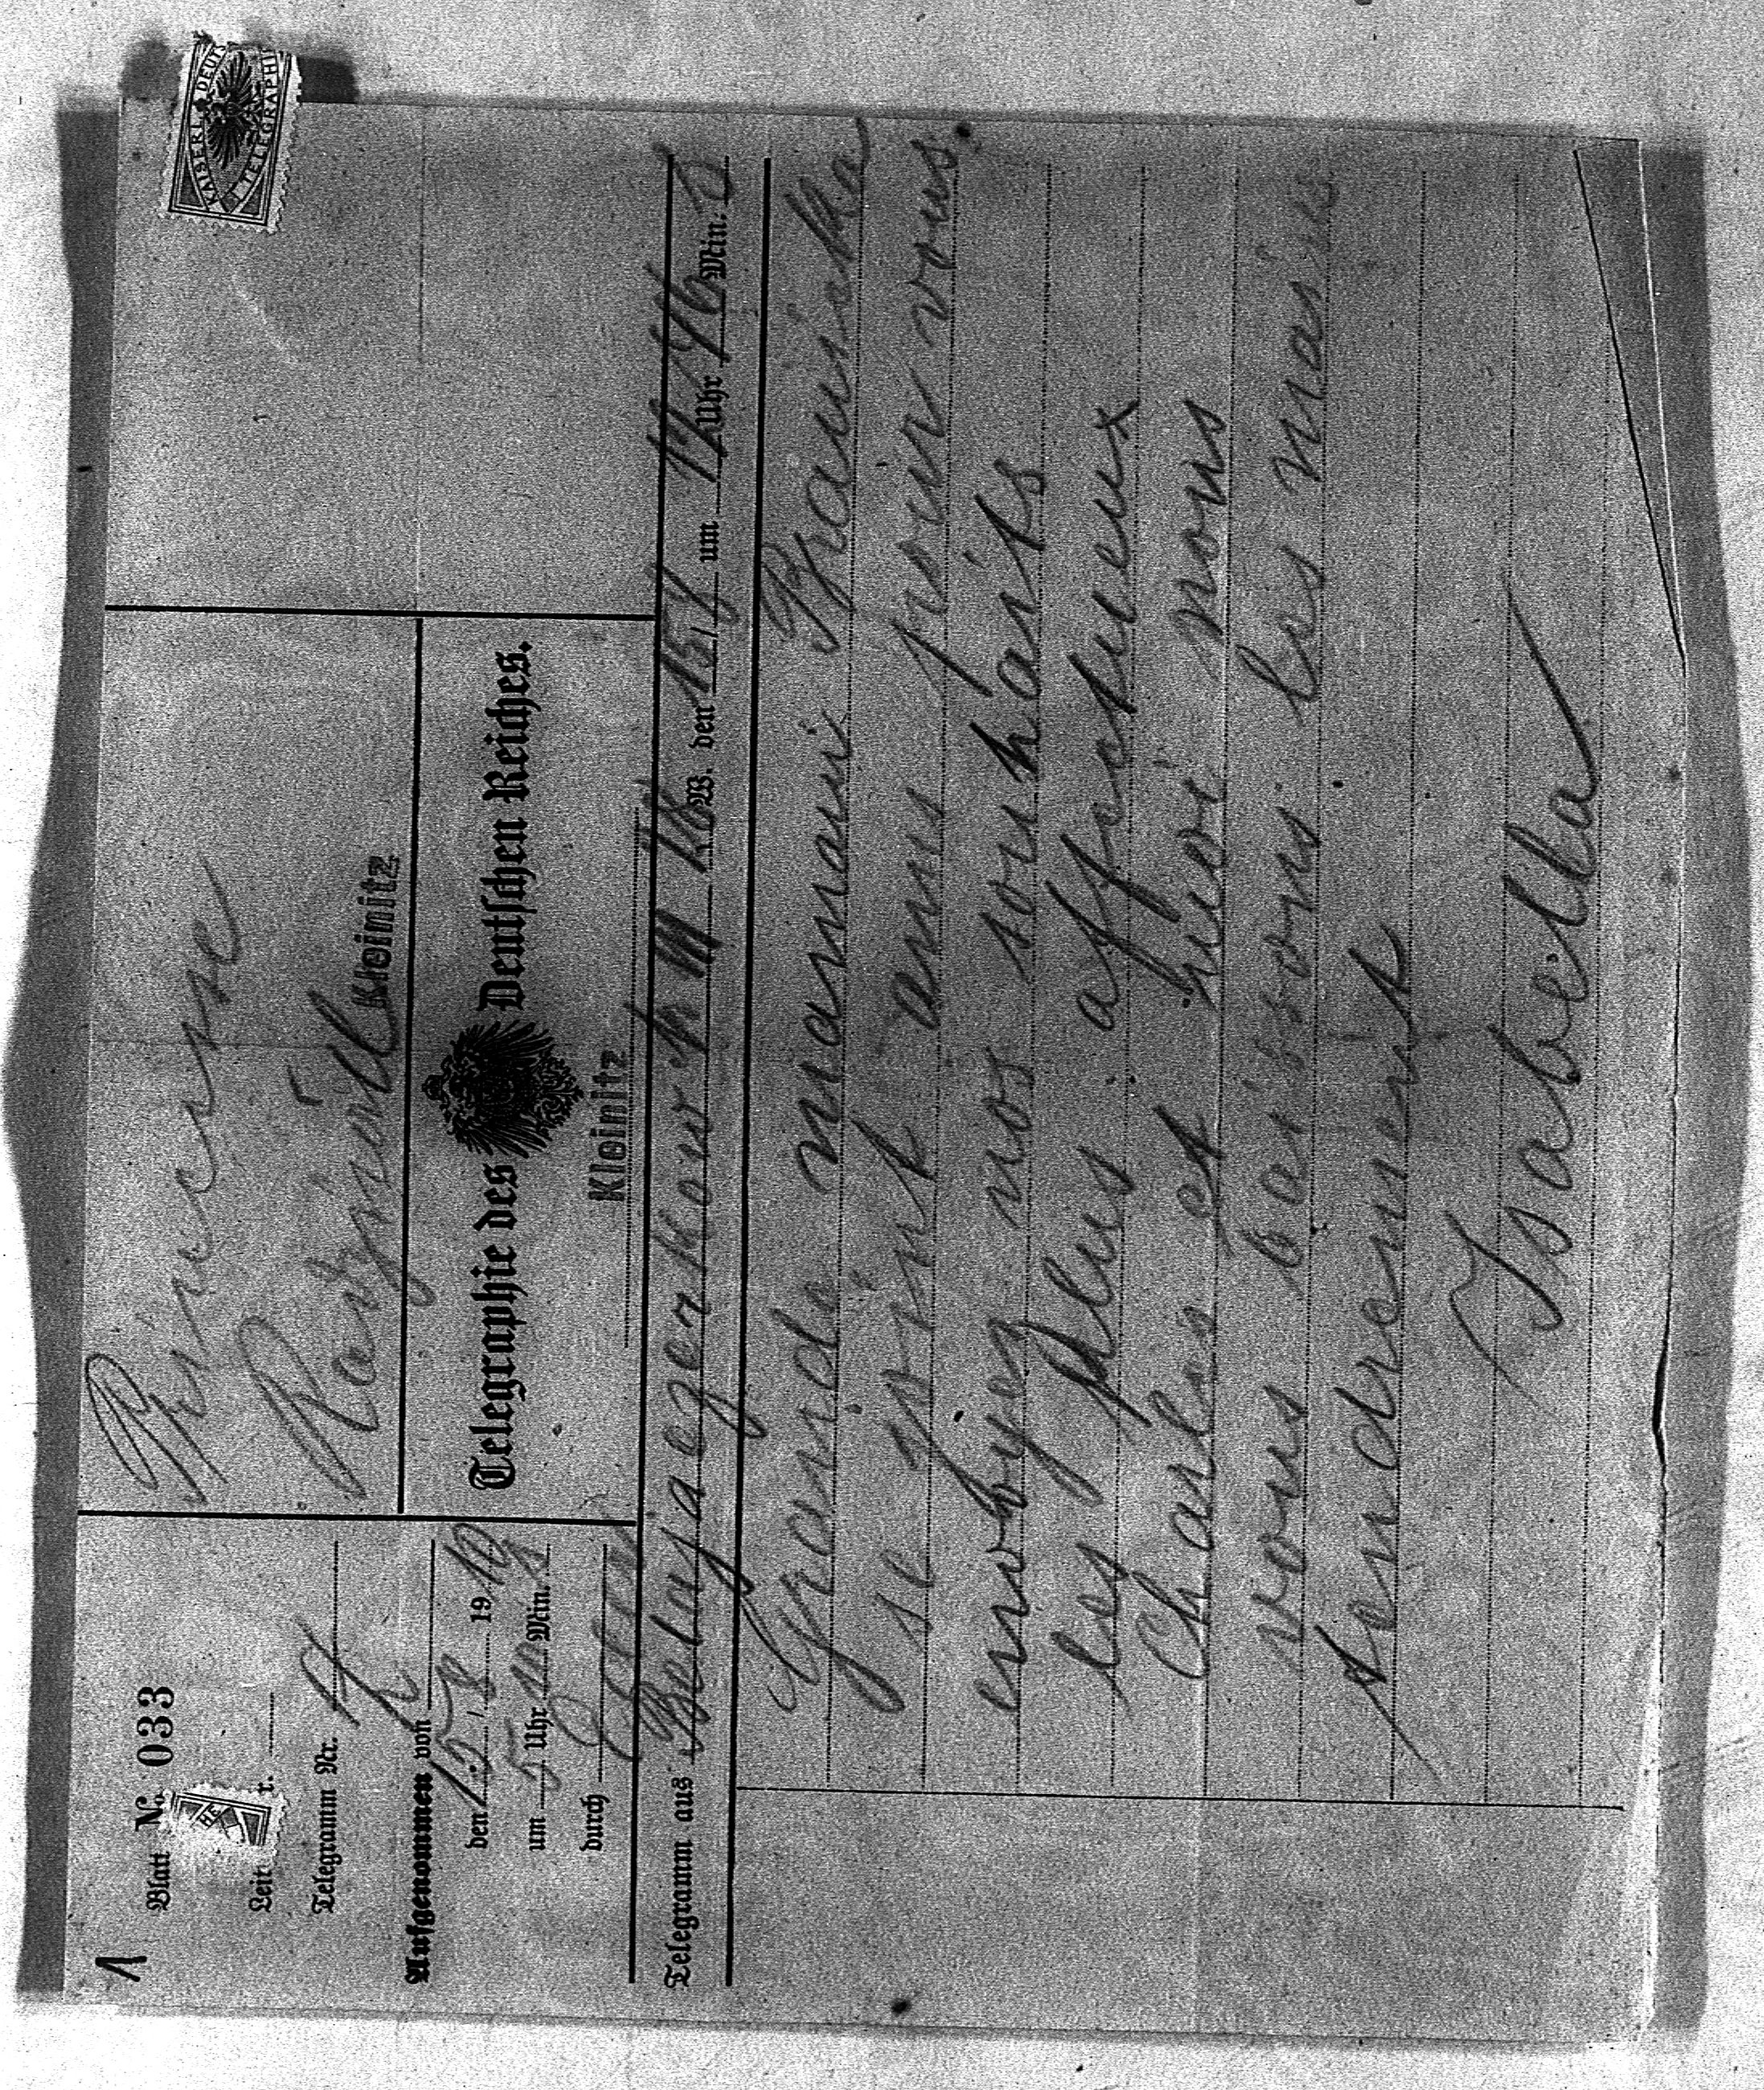 1
Blatt No. 033
Leit r.
Telegramm Nr.
Aufgenommen von
den 15/8 19 10
um 5 Uhr 10 Min.
durch
Princesse
Radziwill
Kleinitz
Telegraphie des Deutschen Reiches.
Kleinitz
KAISERL. DEUTSCHE TELEGRAPHIE
Telegramm aus W. den 15/8 um 12 Uhr 46 Min.
Grand maman
se joint anns pour vous
envoyez nos souhaits
les plus affectueux
Charles et huoi nous
vous baisons les mains
tendrement
Isabella